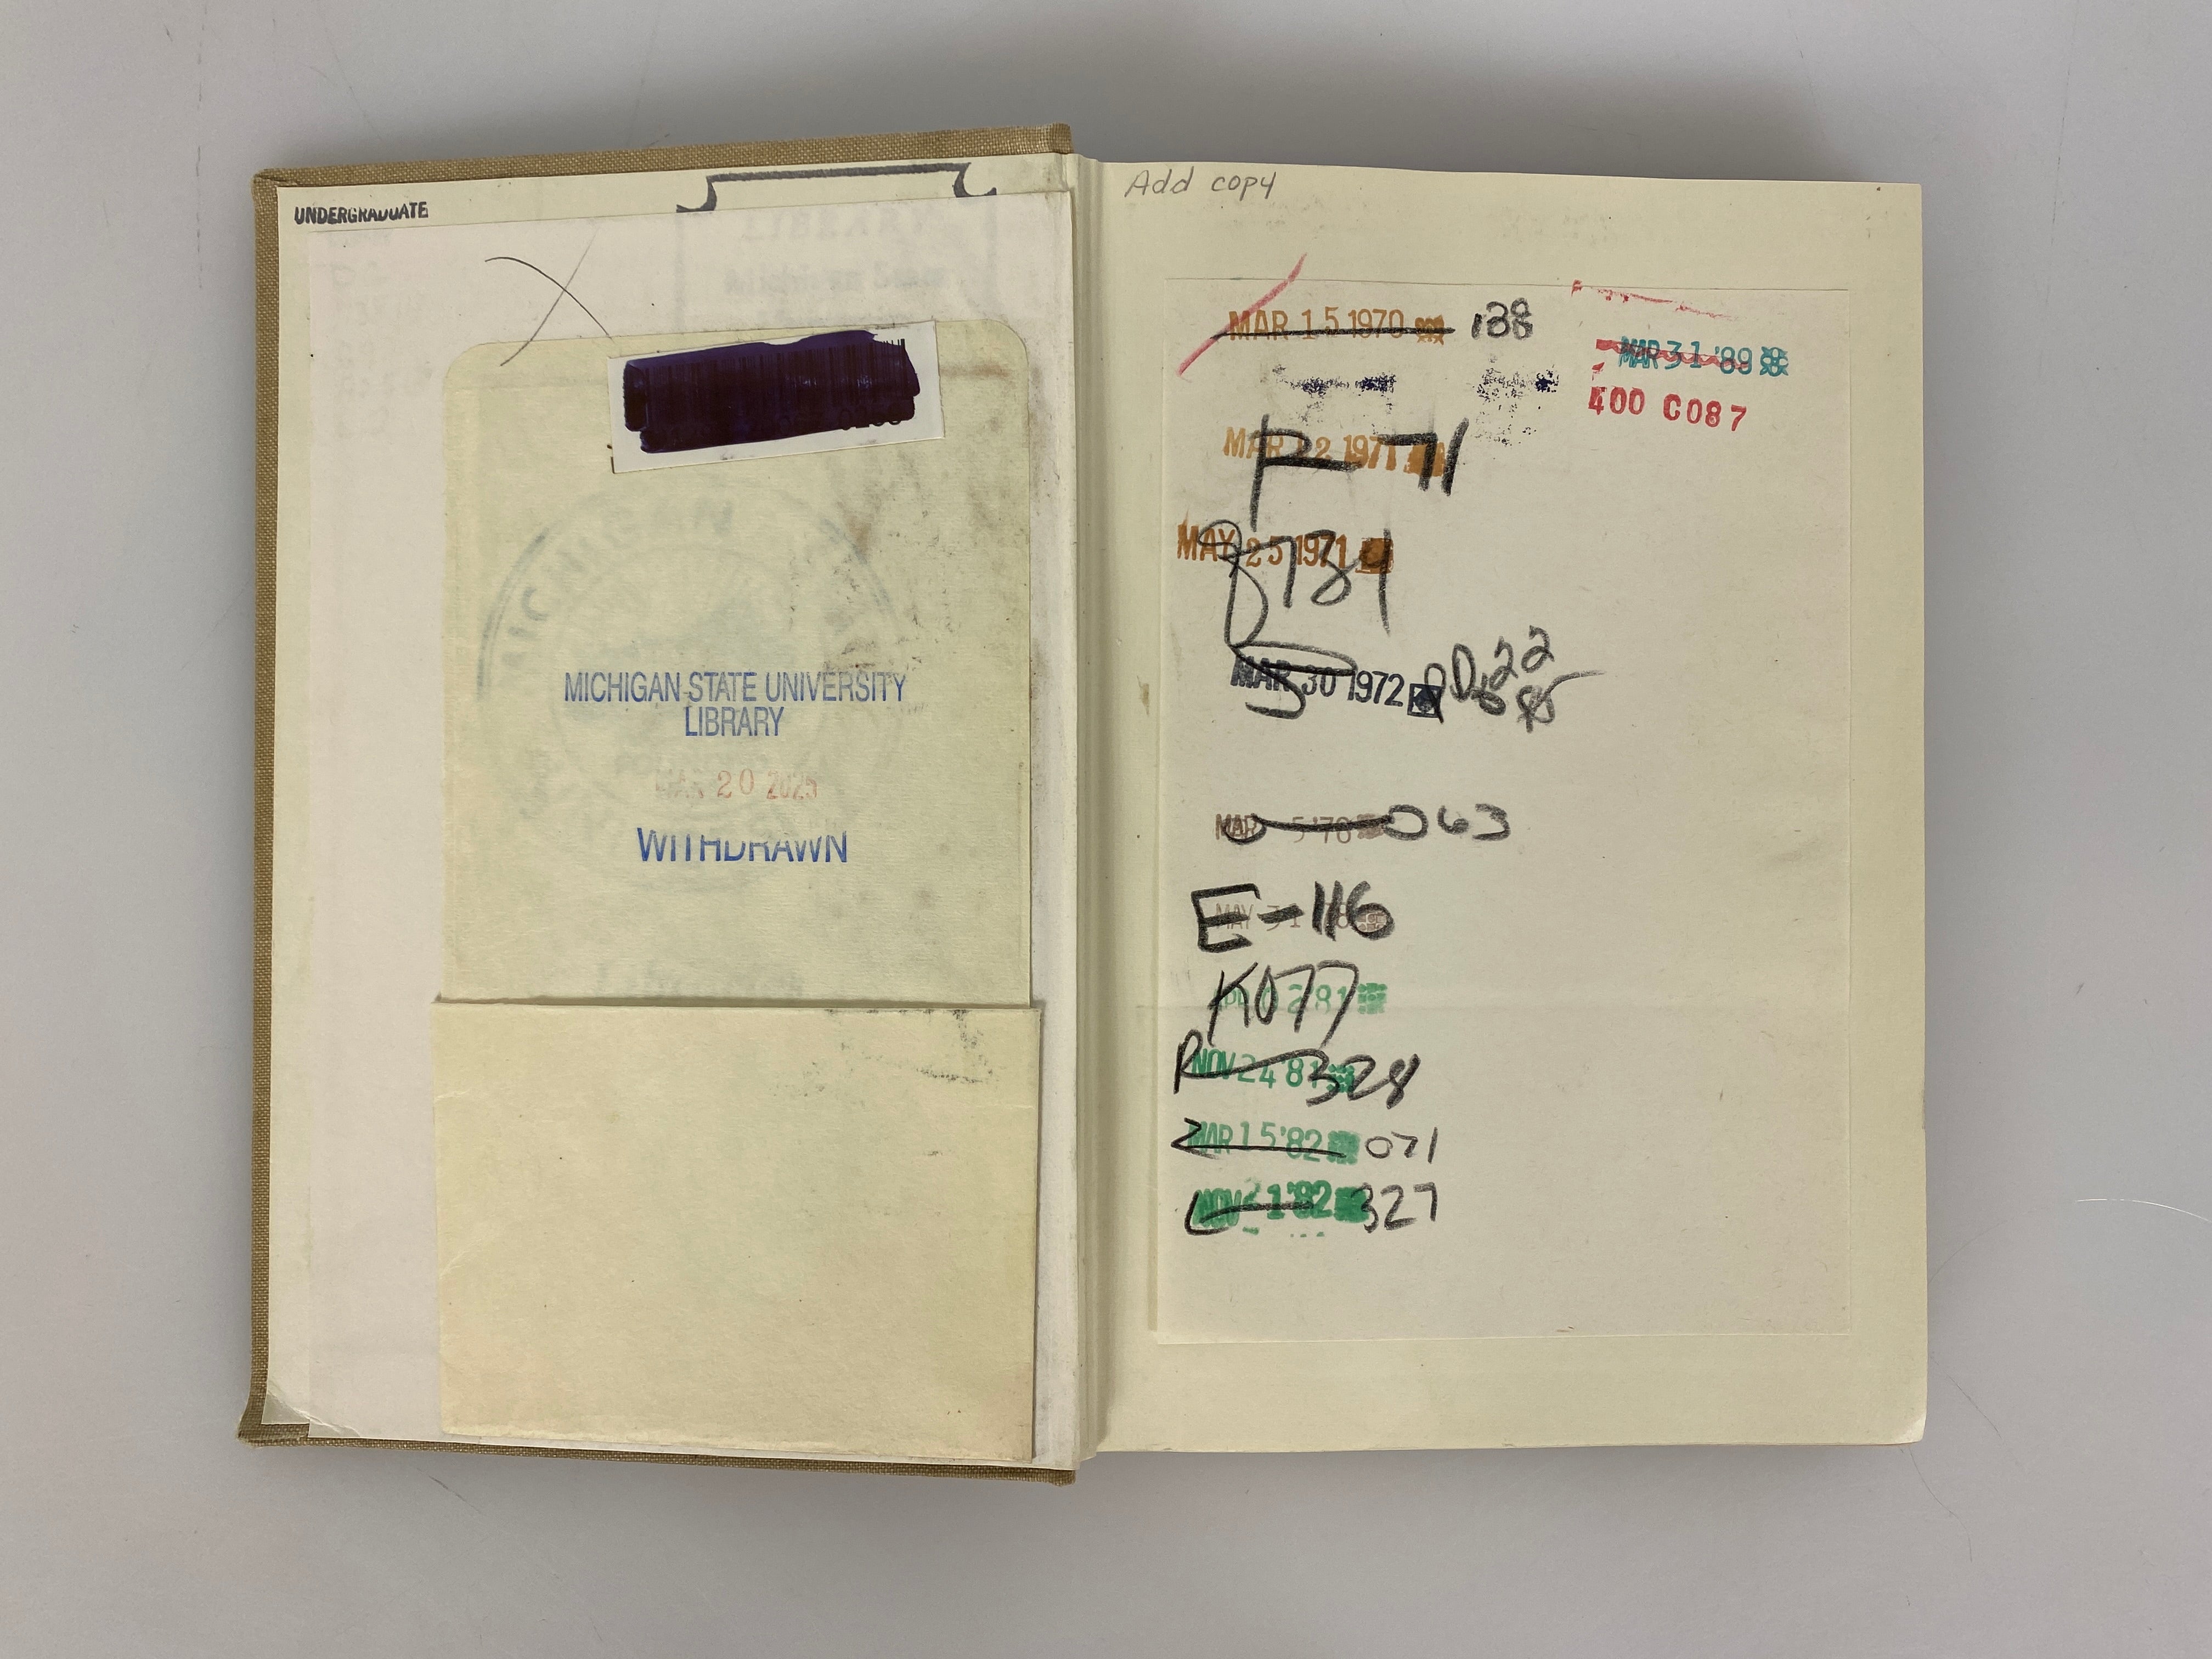 UNDERGRADUATE
MICHIGAN STATE UNIVERSITY
LIBRARY
MAR 20 2025
WITHDRAWN
Add copy
MAR 15 1970 138
MAR 31 '89
400 C087
MAR 12 1971
71
MAY 25 1971
MAR 30 1972
22
MAR 5 '78 063
MAY 31
E-116
K077
2 81
NOV 24 81
R 328
MAR 15 '82 071
NOV 21 '82 327